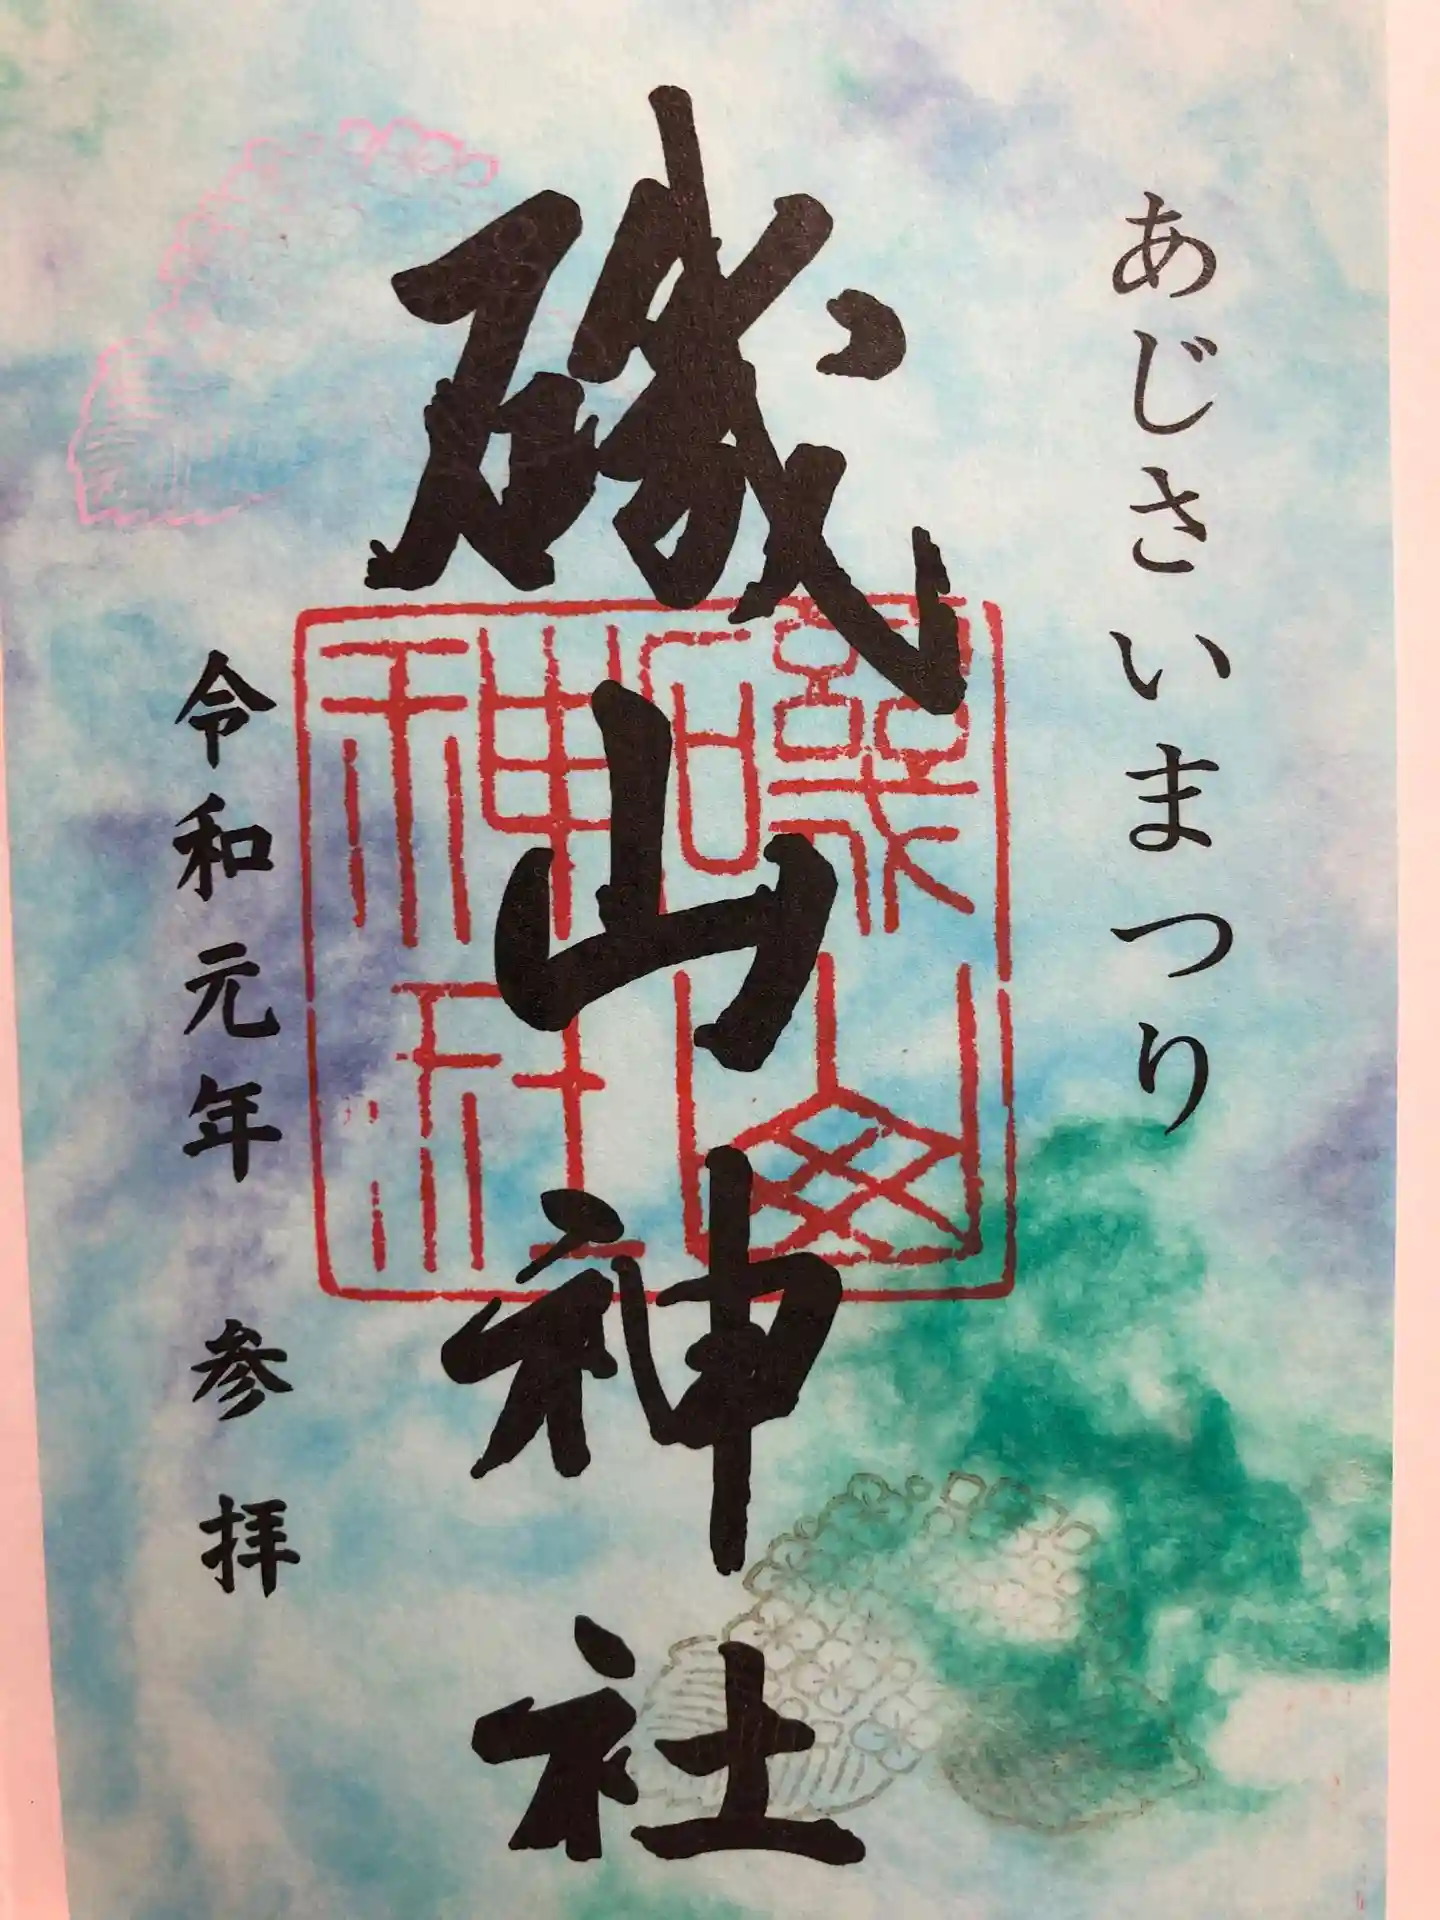 あじさいまつり
磯山神社
磯山神社
令和元年 参拝